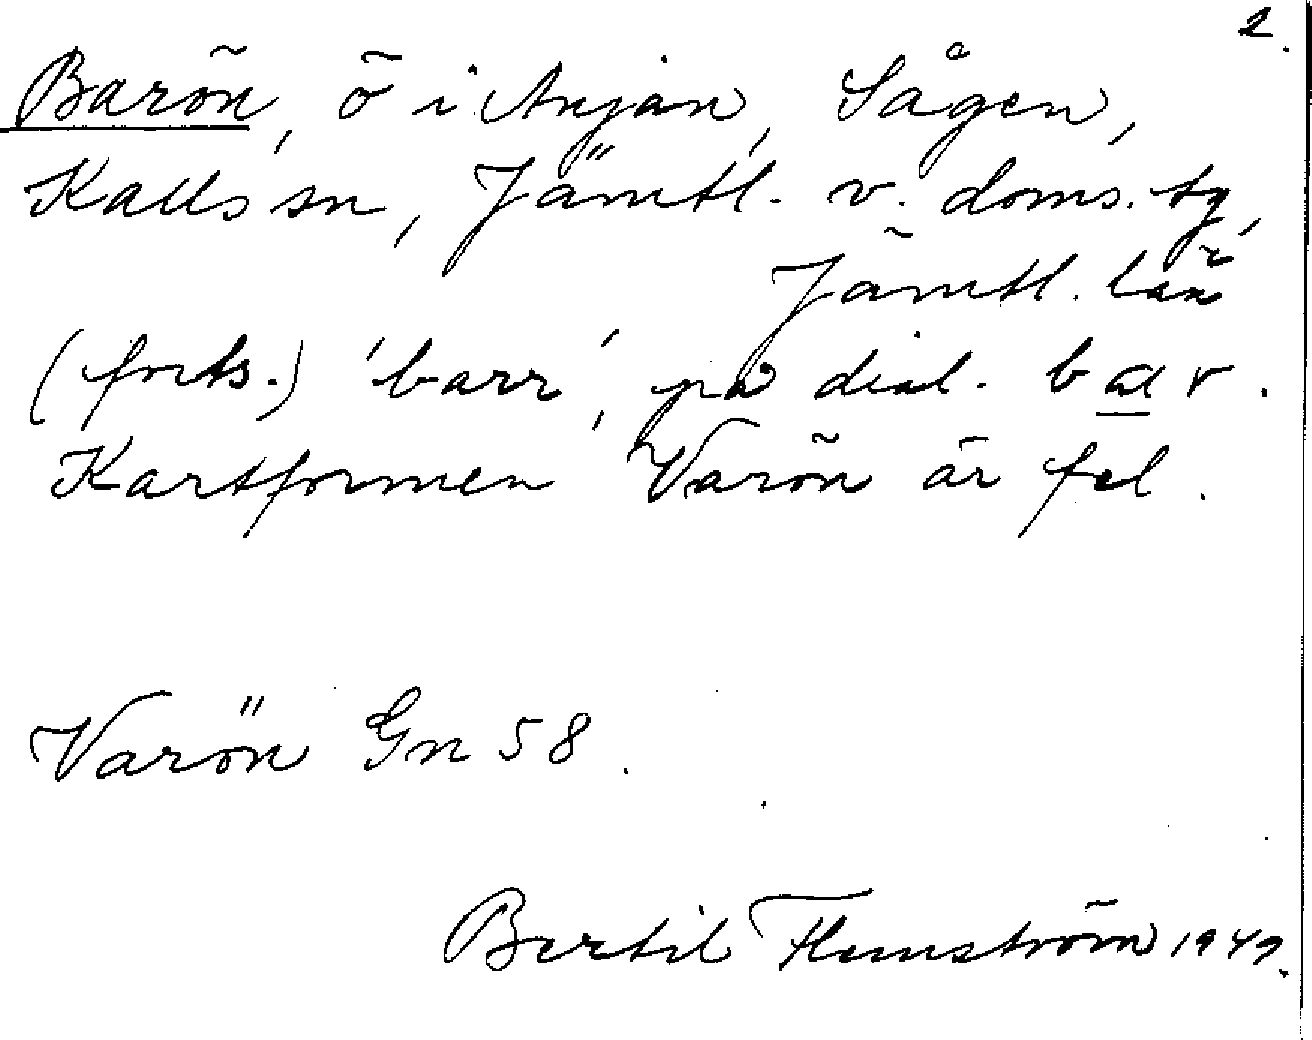 2.
Barön, ö i Anjan, Sågen,
Kalls sn, Jämtl. v. doms. tg,
Jämtl. län
(forts.) 'barr', på dial. bar.
Kartformen Varön är fel.
Varön Gn 58.
Bertil Flemström 1949.